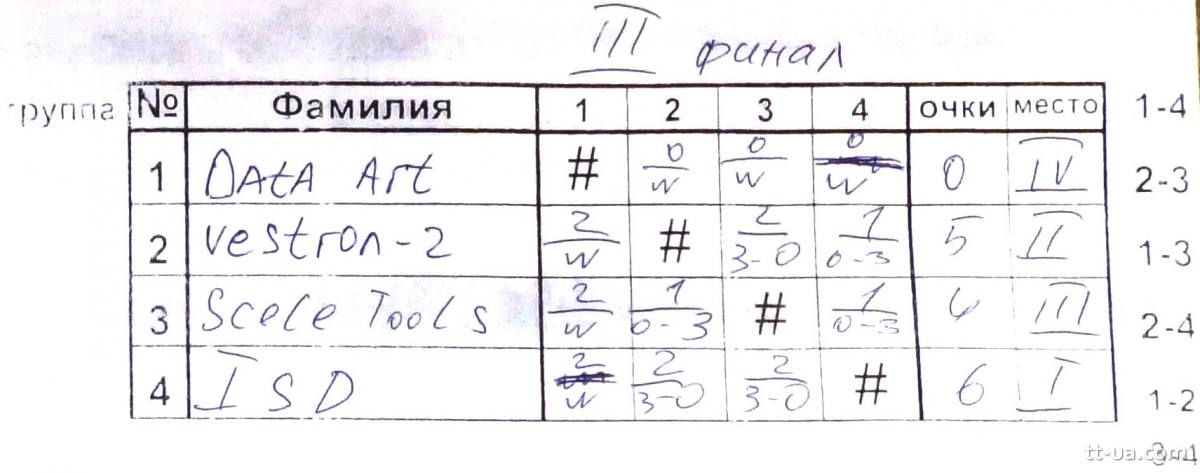 III финал
группа № Фамилия 1 2 3 4 очки место 1-4
1 DAtA Art # 0/w 0/w 0/w 0 IV 2-3
2 Vestron-2 2/w # 2/3-0 1/0-3 5 II 1-3
3 Scele Tools 2/w 1/0-3 # 1/0-3 4 III 2-4
4 ISD 2/w 2/3-0 2/3-0 # 6 I 1-2
3-4
tt-ua.com